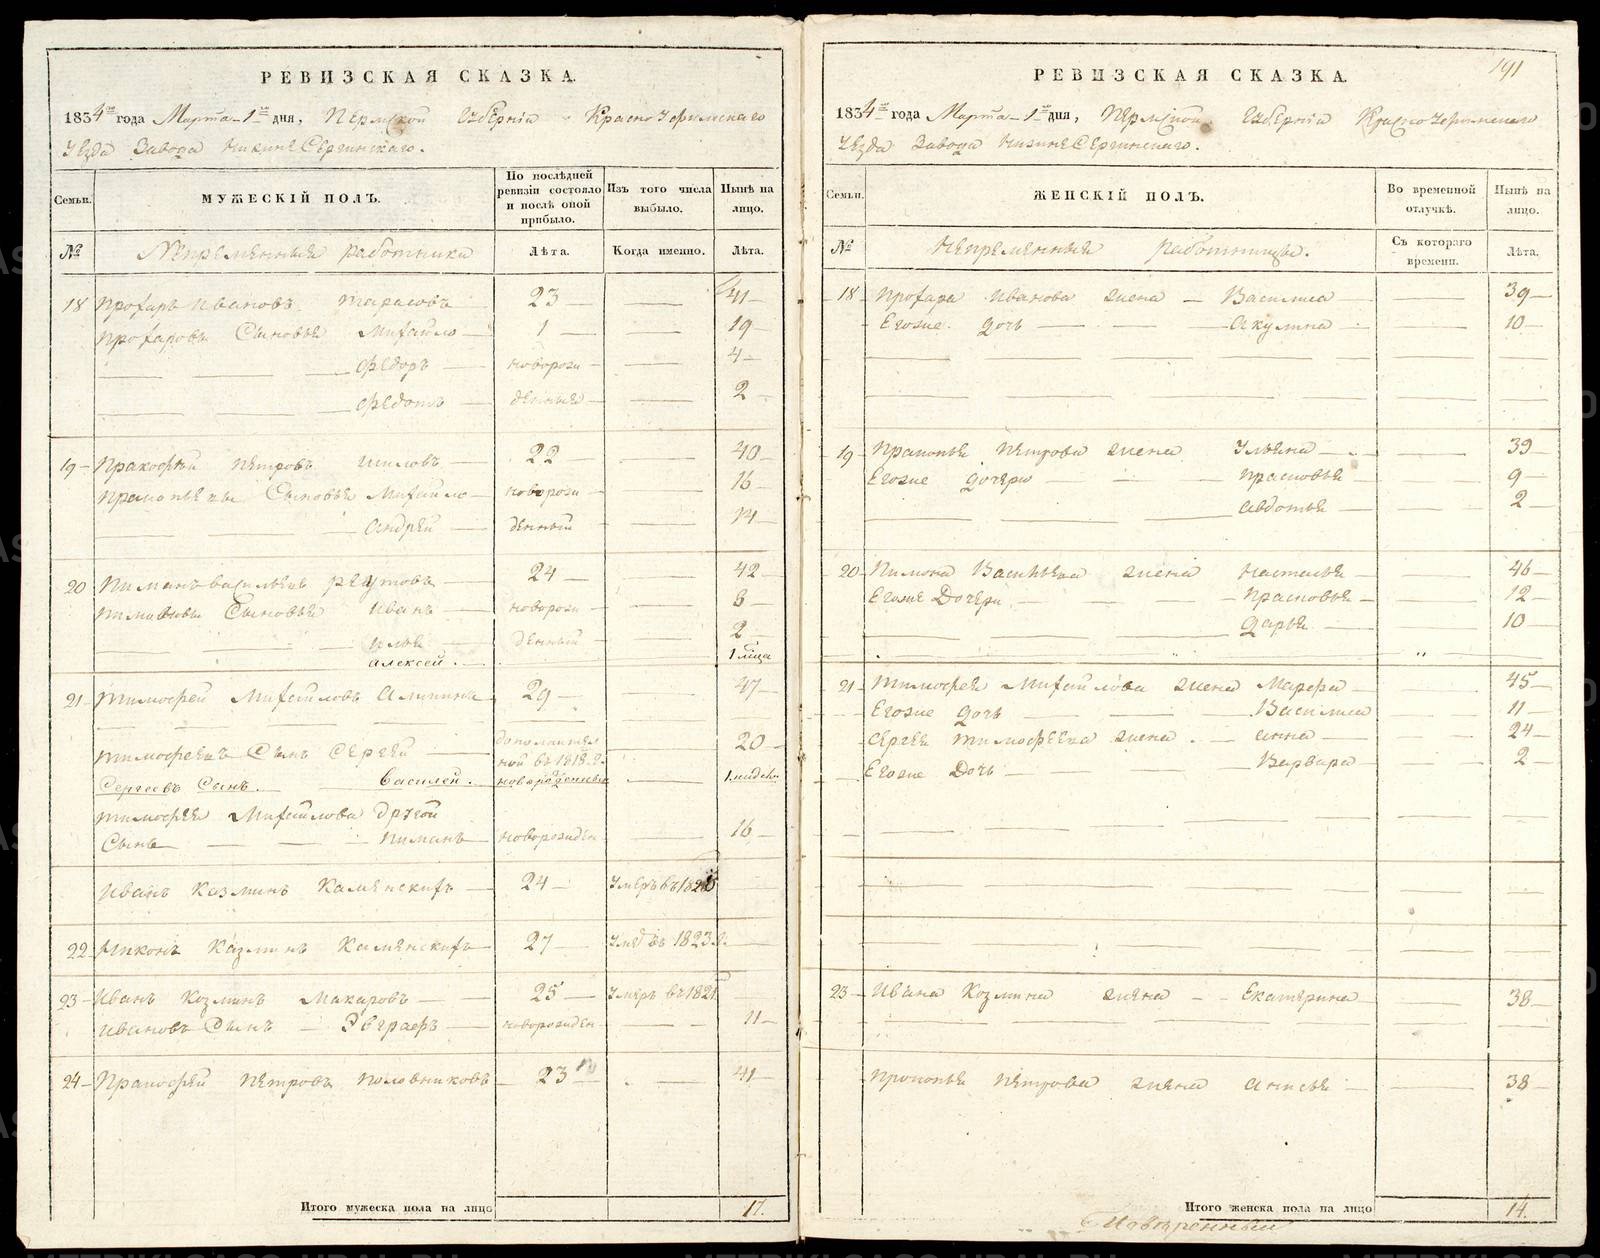 РЕВИЗСКАЯ СКАЗКА.
1834 года Марта 1 дня, Пермской Губерніи Красноуфимскаго
Уезда Завода Нижне Сергинскаго.
Семьи.
МУЖЕСКІЙ ПОЛЪ.
По послѣдней ревизіи состояло и послѣ оной прибыло.
Изъ того числа выбыло.
Нынѣ на лицо.
№ Непременныя работники
Лѣта.
Когда именно.
Лѣта.
18 Прохаръ Ивановъ Тарасовъ 23 41
Прохаровы Сыновья Михайло 1 19
Федоръ новорож 4
Федотъ денныя 2
19 Прокофей Петровъ Шиловъ 22 40
Сыновья Михайло новорож 16
Андрей денный 14
20 Пиманъ Васильевъ 24 42
Сыновья Иванъ новорож 8
Илья денный 2
Алексей. 1
21 Тимофей Михайловъ 29 47
Тимофеевъ Сынъ Сергей 20
ной въ 1818.г.
Сергеевъ Сынъ. Василей. новорожденный
Тимофея Михайлова другой
Сынъ Пиманъ 16
Иванъ Казминъ Каменскихъ 24
22 Никонъ Казминъ Каменскихъ 27 въ 1823.г.
23 Иванъ Козминъ Макаровъ 25 Умеръ въ 1821
Ивановъ Сынъ Эвграфъ 11
24 Прокофей Петровъ Половниковъ 23 41
Итого мужеска пола на лицо 17.
191
РЕВИЗСКАЯ СКАЗКА.
1834 года Марта 1 дня, Пермской Губерніи Красноуфимскаго
Уезда Завода Нижне Сергинскаго.
Семьи.
ЖЕНСКІЙ ПОЛЪ.
Во временной отлучкѣ.
Нынѣ на лицо.
№ Непременныя работницы.
Съ котораго времени.
Лѣта.
18 Прохара Иванова жена Василиса 39
Егоже дочь Акулина 10
19 Прокопья Петрова жена Ульяна 39
Егоже дочери Прасковья 9
Авдотья 2
20 Пимона Васильева жена Наталья 46
Егоже Дочери Прасковья 12
Дарья 10
21 Тимофея Михайлова жена Марфа 45
Егоже дочь Василиса 11
Сергея Тимофеева жена Анна 24
Егоже Дочь Варвара 2
23 Ивана Козмина жена Екатерина 38
Прокопья Петрова жена Анисья 38
Итого женска пола на лицо 14.